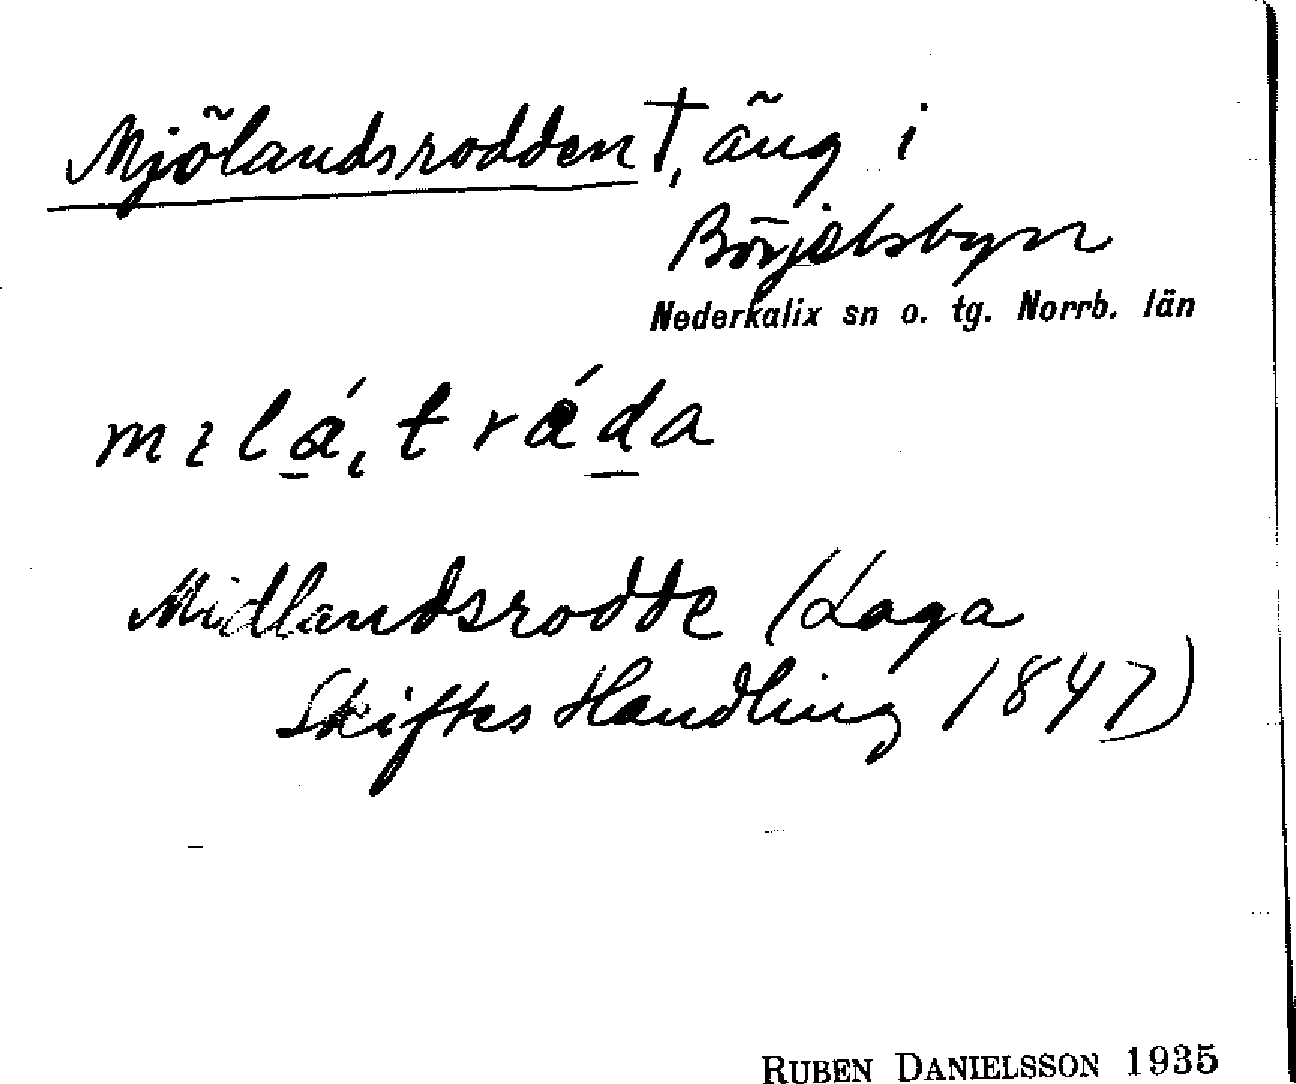 Mjölandsrodden †, äng i
Börjelsbyn
Nederkalix sn o. tg. Norrb. län
Midlandsrodde (Laga
Skiftes Handling 1847)
RUBEN DANIELSSON 1935